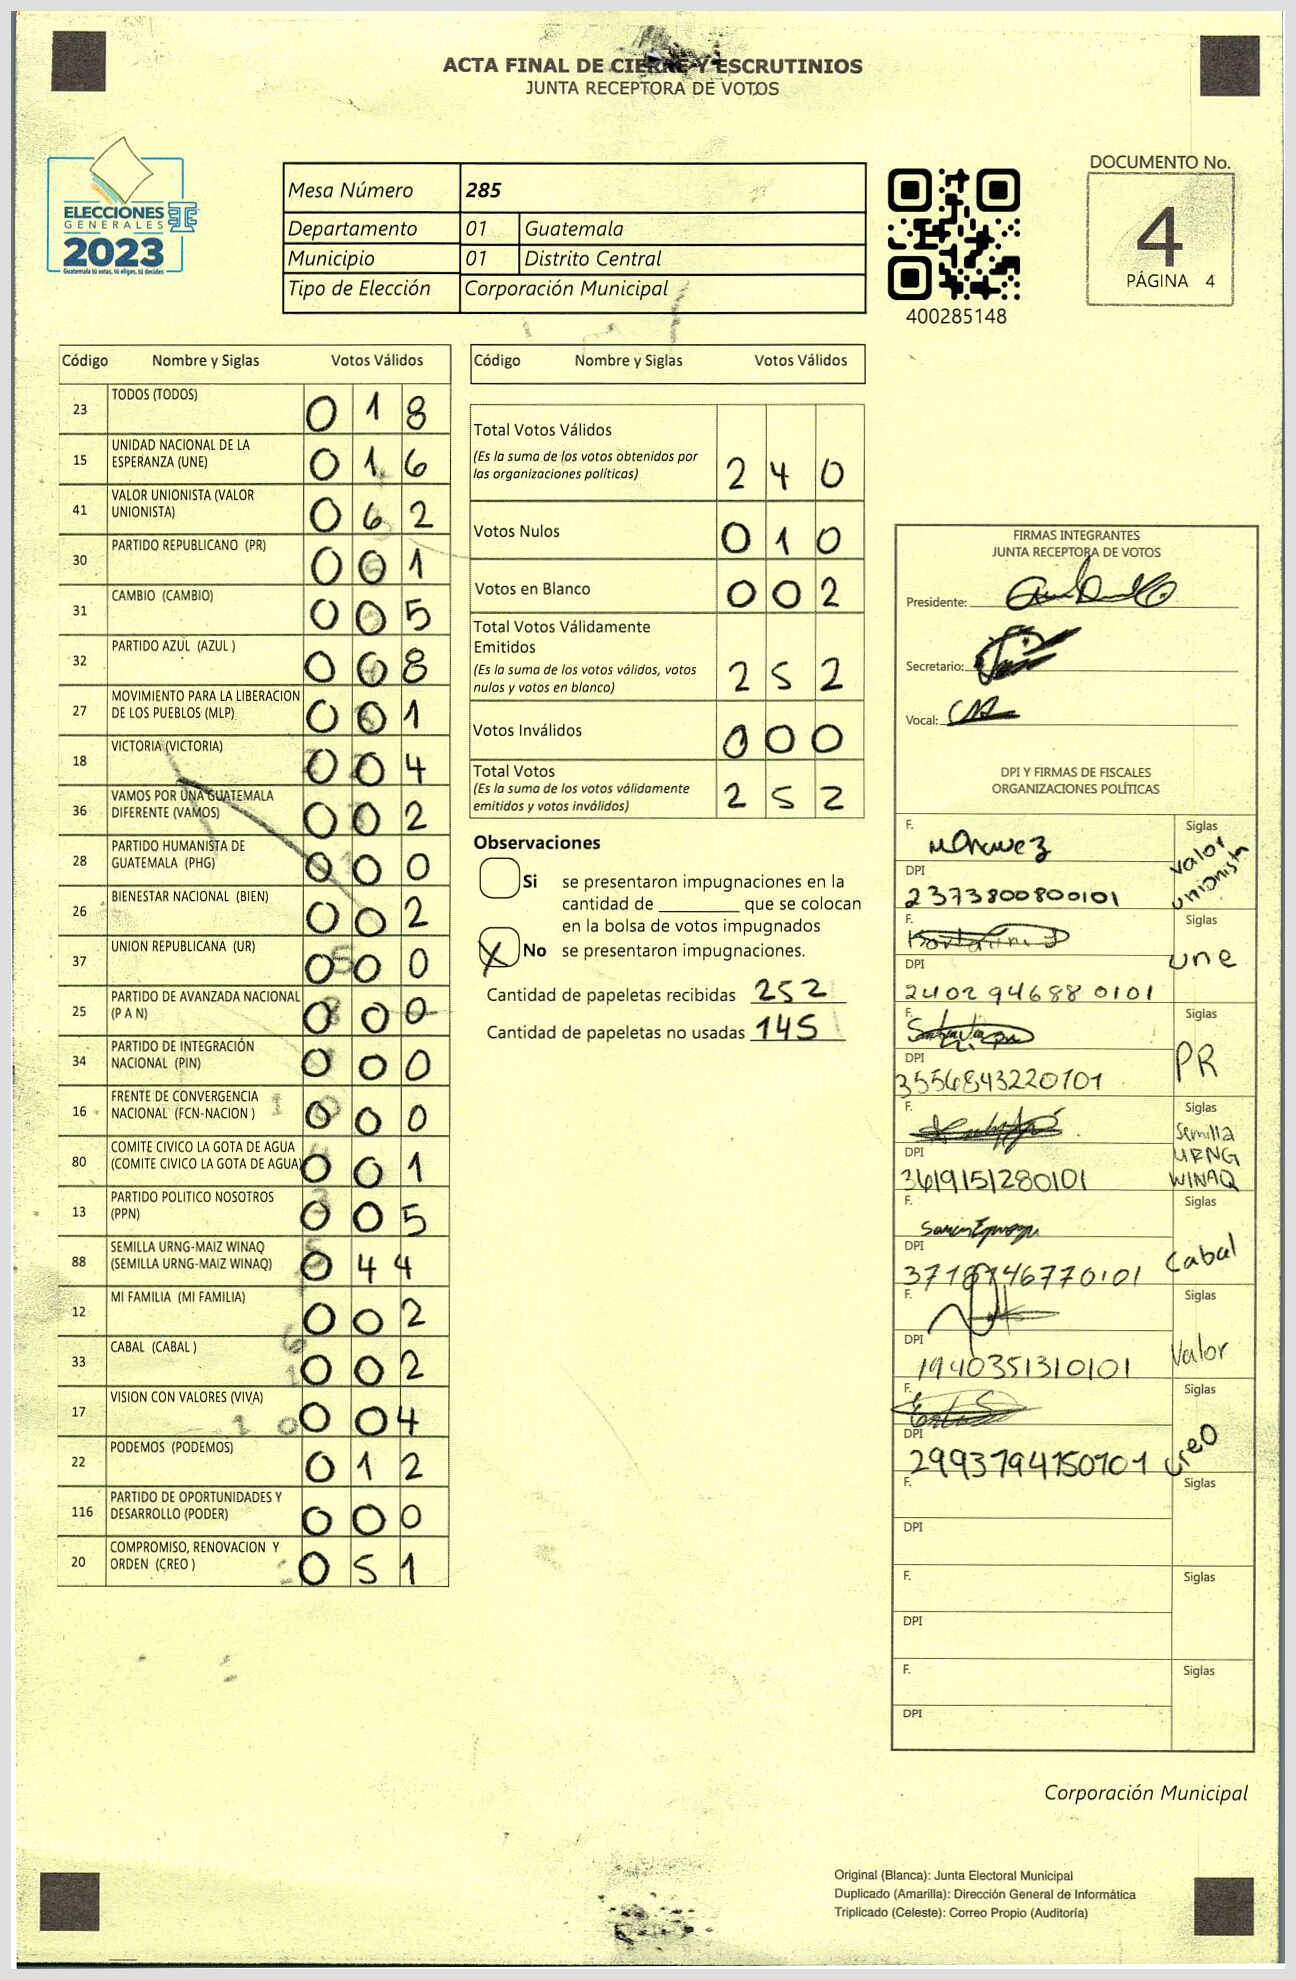 ACTA FINAL DE CIERRE Y ESCRUTINIOS
JUNTA RECEPTORA DE VOTOS
ELECCIONES
GENERALES
2023
Guatemala tú votas, tú eliges, tú decides
Mesa Número 285
Departamento 01 Guatemala
Municipio 01 Distrito Central
Tipo de Elección Corporación Municipal
400285148
DOCUMENTO No.
4
PÁGINA 4
Código Nombre y Siglas Votos Válidos
23 TODOS (TODOS) 0 1 8
15 UNIDAD NACIONAL DE LA
ESPERANZA (UNE) 0 1 6
41 VALOR UNIONISTA (VALOR
UNIONISTA) 0 6 2
30 PARTIDO REPUBLICANO (PR) 0 0 1
31 CAMBIO (CAMBIO) 0 0 5
32 PARTIDO AZUL (AZUL ) 0 0 8
27 MOVIMIENTO PARA LA LIBERACION
DE LOS PUEBLOS (MLP) 0 0 1
18 VICTORIA (VICTORIA) 0 0 4
36 VAMOS POR UNA GUATEMALA
DIFERENTE (VAMOS) 0 0 2
28 PARTIDO HUMANISTA DE
GUATEMALA (PHG) 0 0 0
26 BIENESTAR NACIONAL (BIEN) 0 0 2
37 UNION REPUBLICANA (UR) 0 0 0
25 PARTIDO DE AVANZADA NACIONAL
(P A N) 0 0 0
34 PARTIDO DE INTEGRACIÓN
NACIONAL (PIN) 0 0 0
16 FRENTE DE CONVERGENCIA
NACIONAL (FCN-NACION ) 0 0 0
80 COMITE CIVICO LA GOTA DE AGUA
(COMITE CIVICO LA GOTA DE AGUA) 0 0 1
13 PARTIDO POLITICO NOSOTROS
(PPN) 0 0 5
88 SEMILLA URNG-MAIZ WINAQ
(SEMILLA URNG-MAIZ WINAQ) 0 4 4
12 MI FAMILIA (MI FAMILIA) 0 0 2
33 CABAL (CABAL ) 0 0 2
17 VISION CON VALORES (VIVA) 0 0 4
22 PODEMOS (PODEMOS) 0 1 2
116 PARTIDO DE OPORTUNIDADES Y
DESARROLLO (PODER) 0 0 0
20 COMPROMISO, RENOVACION Y
ORDEN (CREO ) 0 5 1
Código Nombre y Siglas Votos Válidos
Total Votos Válidos
(Es la suma de los votos obtenidos por
las organizaciones políticas) 2 4 0
Votos Nulos 0 1 0
Votos en Blanco 0 0 2
Total Votos Válidamente
Emitidos
(Es la suma de los votos válidos, votos
nulos y votos en blanco) 2 5 2
Votos Inválidos 0 0 0
Total Votos
(Es la suma de los votos válidamente
emitidos y votos inválidos) 2 5 2
Observaciones
Si se presentaron impugnaciones en la
cantidad de ________ que se colocan
en la bolsa de votos impugnados
X No se presentaron impugnaciones.
Cantidad de papeletas recibidas 252
Cantidad de papeletas no usadas 145
FIRMAS INTEGRANTES
JUNTA RECEPTORA DE VOTOS
Presidente:
Secretario:
Vocal:
DPI Y FIRMAS DE FISCALES
ORGANIZACIONES POLÍTICAS
F. Siglas
valor
unionista
DPI
2373800800101
F. Siglas
une
DPI
2402946880101
F. Siglas
PR
DPI
3556843220101
F. Siglas
Semilla
URNG
WINAQ
DPI
3619151280101
F. Siglas
Cabal
DPI
F. Siglas
Valor
DPI
1940351310101
F. Siglas
creo
DPI
2993794150101
F. Siglas
DPI
F. Siglas
DPI
F. Siglas
DPI
Corporación Municipal
Original (Blanca): Junta Electoral Municipal
Duplicado (Amarilla): Dirección General de Informática
Triplicado (Celeste): Correo Propio (Auditoría)